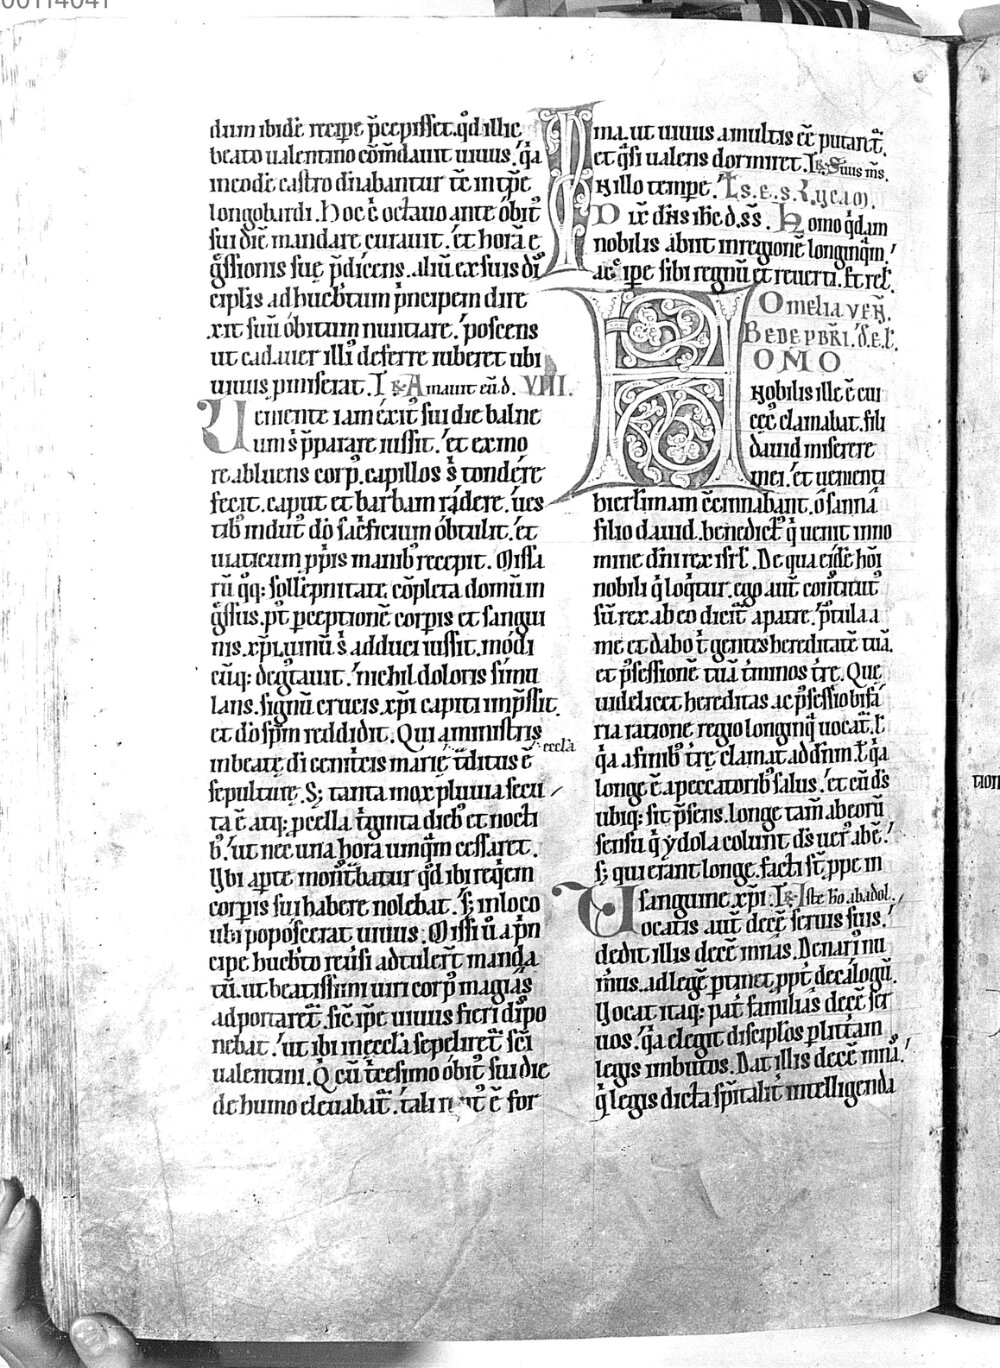 00114041
dum ibidē recipe p̄cepisset. qd̄ illic
beato ualentino cōmdauit uiuus. q̓a
in eodē castro dn̄abantur tc̄ in tp̄e
longobardi. Hoc ē octauo ante obit᷒
sui diē mandare curauit. et horā e
g̓ssionis suę p̄dicens. aliū ex suis di
cipl̓is ad huebtum p̓ncipem dire
xit suū obitum nuntiare. poscens
ut cadauer illi᷒ deferre iuberet ubi
uiuus pmiserat. R̓. Amauit eū d. VIII.
Ueniente iam exit᷒ sui die balne
um s̓ p̄parare iussit. et ex mo
re abluens corp᷒. capillos s̓ tondere
fecit. caput et barbam radere. ues
tib᷒ indut᷒ dō sac̓ficium obtulit. et
uiaticum p̓p̓is manib᷒ recepit. Missa
rū q̓q: sollēpnitate cōpleta domum
g̓ssus. p᷒t pceptionē corp̄is et sangui
nis. xp̄i uinū s̓ adduci iussit. modi
cūq: degtauit. nichil doloris simu
lans. signū crucis. xp̄i capiti imp̄ssit.
et dō sp̄m reddidit. Qui a ministris
eccl̓a
in beatę dī genitcis marię tditus ē
sepulture. S; tanta mox pluuia secu
ta ē atq: pcella. tginta dieb᷒ et nocti
b᷒. ut nec una hora umq̄m cessaret.
Ubi apte monst̓batur qd̄ ibi reqēm
corp̄is sui habere nolebat. s; in loco
ubi poposcerat uiuus. Missi ū a p̓n
cipe huebto reusi adtulert̄ manda
tū. ut beatissimi uiri corp᷒ magias
adportaret̄. sic̄ ip̄e uiuus fieri dispo
nebat. ut ibi in eccl̓a sepeliret̄ sc̄i
ualentini. Q cū tcesimo obit᷒ sui die
de humo eleuabat̄. tali ē for
ma. ut uiuus a multis ēē putaret̄.
et q̓si ualens dormiret. R̓. Suus m̄s.
N illo tempe. I.s.e.s. Lycam.
Dix̄ dn̄s ih̄c d.s̄s. Homo q̓dam
nobilis abiit in regionē longinq̄m.
acc̓ ip̄e sibi regnū et reuerti. Et rel̓.
Omelia ven̄.
Bede pbr̄i. d.e.l̓.
HOMO
Nobilis ille ē cui
cec᷒ clamabat. fili
dauid miserere
mei. et uenienti
hierl̓imam cēcinnabant. osanna
filio dauid. benedict᷒ q̓ uenit in no
mine dn̄i rex isrl̓. De qua eidē hōi
nobili q̓ loq̓tur. ego aut̄ constitut᷒
sū rex ab eo dicit̄ a patre. p᷒tula a
me et dabo t̓ gentes hereditatē tuā.
et p᷒sessionē tuā tminos tre. Que
uidelicet hereditas ac p᷒sessio bifa
ria ratione regio longinq̓ uocat̄. l̓
q̓a a finib᷒ trę clamat ad dn̄m. l̓ q̓a
longe ē a peccatorib᷒ salus. et cū ds̄
ubiq: sit p̄sens. longe tam̄ ab eorū
sensu q̓ ydola colunt ds̄ uer᷒ abē.
s; qui erant longe. facti st̄ ppe in
sanguine xp̄i. R̓. Iste ho. ab adol.
Uocatis aut̄ decē seruis suis.
dedit illis decē mnas. Denari᷒ nu
m̓us. ad legē ptinet. ppt̓ decalogū.
Uocat itaq: pat̓ familias decē ser
uos. q̓a elegit discipl̓os p litt̓am
legis imbutos. Dat illis decē mnā.
q̓ legis dicta sp̄italit̓ intelligenda